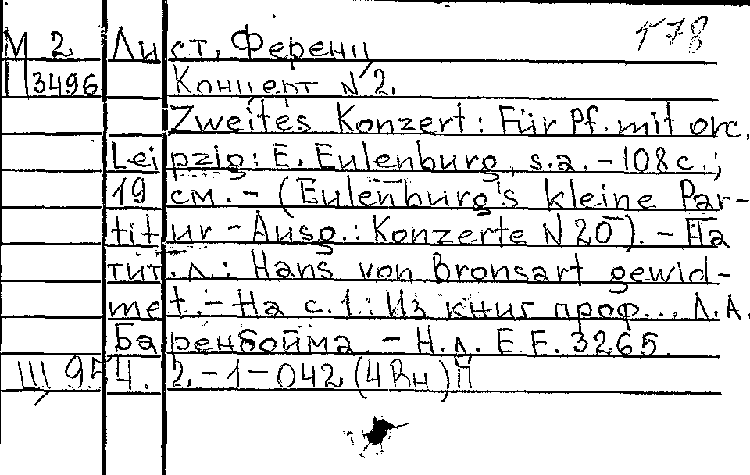 178
М 2 Лист, Ференц
П3496 Концерт №2.
Zweites Konzert: Für Pf. mit orc.
Leipzig: E. Eulenburg, s.a. - 108 с.;
19 см. - (Eulenburg's kleine Par-
titur - Ausg.: Konzerte N 20). - На
тит. л.: Hans von Bronsart gewid-
met. - На с. 1.: Из книг проф... Л.А.
Баренбойма - Н.д. E.E. 3265.
III 95 4. 2. - 1 - 042 (4Вн) П